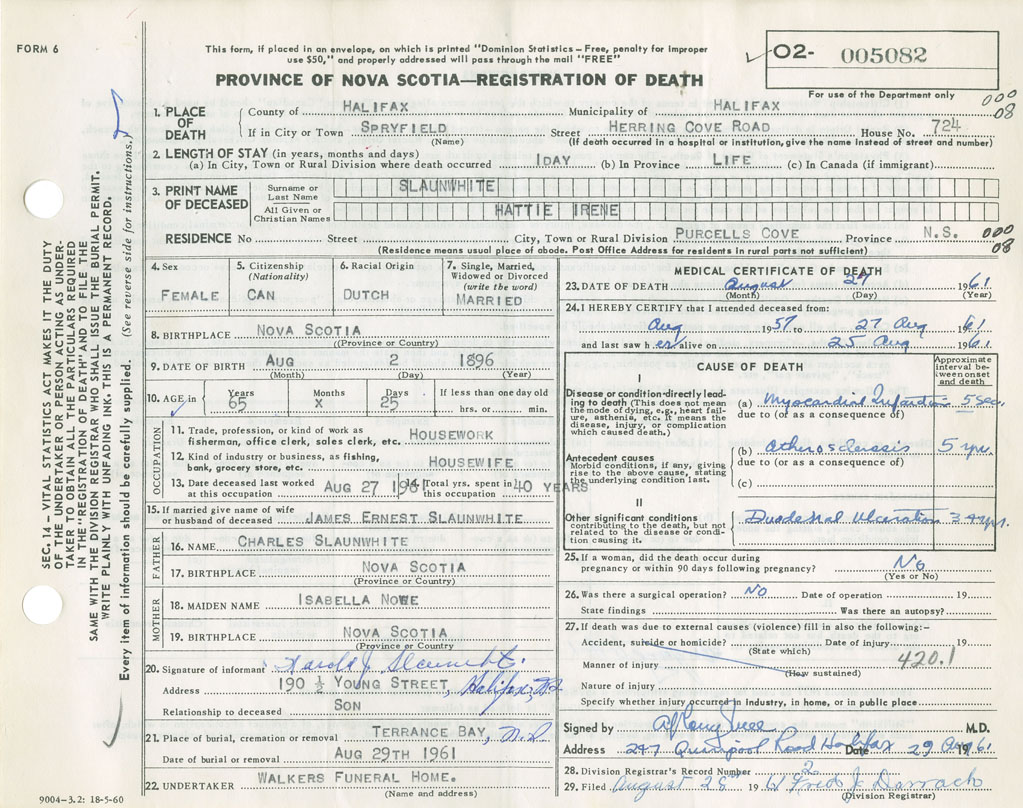 FORM 6
This form, if placed in an envelope, on which is printed "Dominion Statistics – Free, penalty for improper
use $50," and properly addressed will pass through the mail "FREE"
O2- 005082
For use of the Department only
PROVINCE OF NOVA SCOTIA—REGISTRATION OF DEATH
000
08
1. PLACE OF DEATH
County of HALIFAX Municipality of HALIFAX
If in City or Town SPRYFIELD Street HERRING COVE ROAD House No. 724
(Name) (If death occurred in a hospital or institution, give name instead of street and number)
2. LENGTH OF STAY (in years, months and days)
(a) In City, Town or Rural Division where death occurred 1DAY (b) In Province LIFE (c) In Canada (if immigrant)
3. PRINT NAME OF DECEASED
Surname or Last Name SLAUNWHITE
All Given or Christian Names HATTIE IRENE
RESIDENCE No Street City, Town or Rural Division PURCELLS COVE Province N.S. 000
08
(Residence means usual place of abode. Post Office Address for residents in rural parts not sufficient)
4. Sex
FEMALE
5. Citizenship (Nationality)
CAN
6. Racial Origin
DUTCH
7. Single, Married, Widowed or Divorced (write the word)
MARRIED
8. BIRTHPLACE NOVA SCOTIA
((Province or Country)
9. DATE OF BIRTH AUG 2 1896
(Month) (Day) (Year)
10. AGE in
Years 65 Months X Days 25 If less than one day old
hrs. or min.
OCCUPATION
11. Trade, profession, or kind of work as
fisherman, office clerk, sales clerk, etc. HOUSEWORK
12. Kind of industry or business, as fishing,
bank, grocery store, etc. HOUSEWIFE
13. Date deceased last worked at this occupation AUG 27 1961
14. Total yrs. spent in this occupation 40 YEARS
15. If married give name of wife
or husband of deceased JAMES ERNEST SLAUNWHITE
FATHER
16. NAME CHARLES SLAUNWHITE
17. BIRTHPLACE NOVA SCOTIA
(Province or Country)
MOTHER
18. MAIDEN NAME ISABELLA NOWE
19. BIRTHPLACE NOVA SCOTIA
(Province or Country
20. Signature of informant Harold J. Slaunwhite
Address 190 ½ YOUNG STREET, Halifax, N.S
Relationship to deceased SON
21. Place of burial, cremation or removal TERRANCE BAY, N.S.
Date of burial or removal AUG 29TH 1961
22. UNDERTAKER WALKERS FUNERAL HOME.
(Name and address)
9004–3.2: 18-5-60
MEDICAL CERTIFICATE OF DEATH
23. DATE OF DEATH August 27 1961
(Month) (Day) (Year)
24. I HEREBY CERTIFY that I attended deceased from:
Aug 1957 to 27 Aug 1961
and last saw her alive on 25 Aug 1961
CAUSE OF DEATH
Approximate interval between onset and death
I
Disease or condition directly leading to death (This does not mean the mode of dying, e.g., heart failure, asthenia, etc. It means the disease, injury, or complication which caused death.)
(a) Myocardial Infarction 5 sec.
due to (or as a consequence of)
Antecedent causes
Morbid conditions, if any, giving rise to the above cause, stating the underlying condition last.
(b) atherosclerosis 5 yr.
due to (or as a consequence of)
(c)
II
Other significant conditions
contributing to the death, but not related to the disease or condition causing it.
Duodenal Ulceration
25. If a woman, did the death occur during
pregnancy or within 90 days following pregnancy? No
(Yes or No)
26. Was there a surgical operation? No Date of operation 19
State findings Was there an autopsy?
27. If death was due to external causes (violence) fill in also the following:–
Accident, suicide or homicide? Date of injury 19
(State which)
Manner of injury 420.1
(How sustained)
Nature of injury
Specify whether injury occurred in Industry, in home, or in public place
Signed by M.D.
Address 247 Quinpool Road Halifax Date 29 Aug 1961
28. Division Registrar's Record Number 2
29. Filed August 28 1961 Fred J. Darrach
(Division Registrar)
SEC. 14 – VITAL STATISTICS ACT MAKES IT THE DUTY
OF THE UNDERTAKER OR PERSON ACTING AS UNDER-
TAKER TO OBTAIN ALL THE PARTICULARS REQUIRED
IN THE "REGISTRATION OF DEATH" AND TO FILE THE
SAME WITH THE DIVISION REGISTRAR WHO SHALL ISSUE THE BURIAL PERMIT.
WRITE PLAINLY WITH UNFADING INK. THIS IS A PERMANENT RECORD.
Every item of information should be carefully supplied. (See reverse side for instructions.)